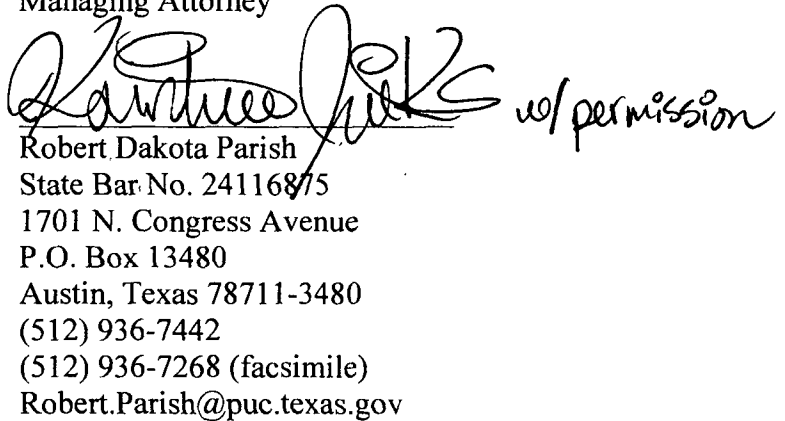 Managing Attorney
w/ permission
Robert Dakota Parish
State Bar No. 24116875
1701 N. Congress Avenue
P.O. Box 13480
Austin, Texas 78711-3480
(512) 936-7442
(512) 936-7268 (facsimile)
Robert.Parish@puc.texas.gov